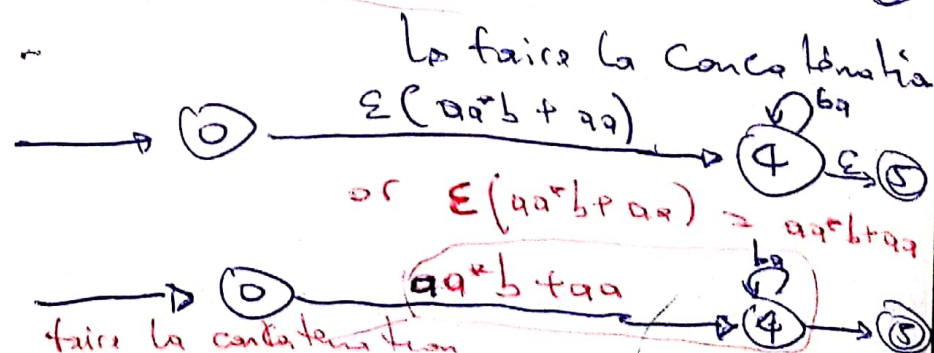 Ls faire la Concaténatio
ε(aa*b + aa)
ba
0
4
ε
5
or ε(aa*b + aa) = aa*b+aa
ba
0
aa*b + aa
4
5
faire la concatenation